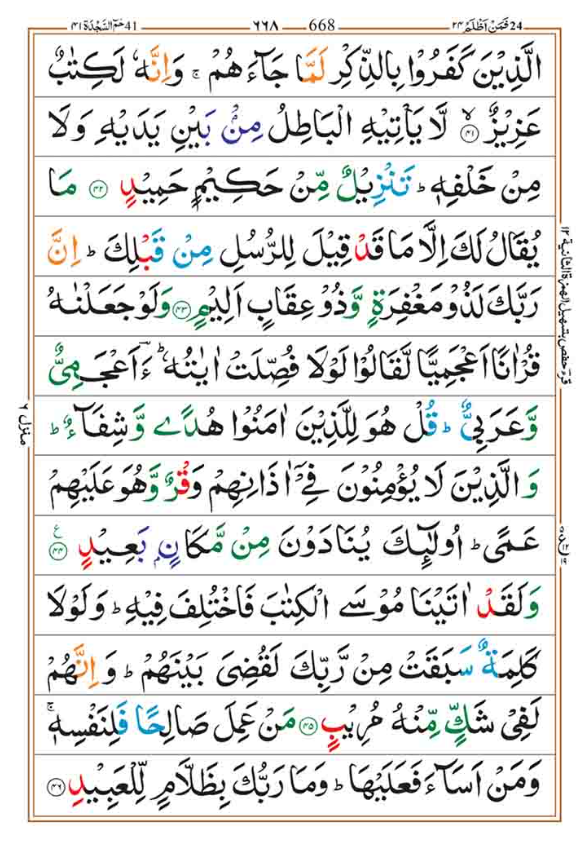 41 حٰمٓ السَّجْدَة ٤١ ٦٦٨ 668 فَمَنْ اَظْلَمُ ٢٤ 24
الَّذِيْنَ كَفَرُوْا بِالذِّكْرِ لَمَّا جَآءَهُمْ ۚ وَاِنَّهٗ لَكِتٰبٌ
عَزِيْزٌ ۙ‏﴿۴۱﴾ لَّا يَاْتِيْهِ الْبَاطِلُ مِنْۢ بَيْنِ يَدَيْهِ وَلَا
مِنْ خَلْفِهٖ ؕ تَنْزِيْلٌ مِّنْ حَكِيْمٍ حَمِيْدٍ ‏﴿۴۲﴾ مَا
يُقَالُ لَكَ اِلَّا مَا قَدْ قِيْلَ لِلرُّسُلِ مِنْ قَبْلِكَ ؕ اِنَّ
رَبَّكَ لَذُوْ مَغْفِرَةٍ وَّذُوْ عِقَابٍ اَلِيْمٍ ‏﴿۴۳﴾ وَلَوْ جَعَلْنٰهُ
قُرْاٰنًا اَعْجَمِيًّا لَّقَالُوْا لَوْلَا فُصِّلَتْ اٰيٰتُهٗ ؕ ءَؔاَعْجَمِىٌّ
وَّعَرَبِىٌّ ؕ قُلْ هُوَ لِلَّذِيْنَ اٰمَنُوْا هُدًى وَّشِفَآءٌ ؕ
وَالَّذِيْنَ لَا يُؤْمِنُوْنَ فِىْۤ اٰذَانِهِمْ وَقْرٌ وَّهُوَ عَلَيْهِمْ
عَمًى ؕ اُولٰٓئِكَ يُنَادَوْنَ مِنْ مَّكَانٍۭ بَعِيْدٍ ‏﴿۴۴﴾ ع
وَلَقَدْ اٰتَيْنَا مُوْسَى الْكِتٰبَ فَاخْتُلِفَ فِيْهِ ؕ وَلَوْلَا
كَلِمَةٌ سَبَقَتْ مِنْ رَّبِّكَ لَقُضِىَ بَيْنَهُمْ ؕ وَاِنَّهُمْ
لَفِىْ شَكٍّ مِّنْهُ مُرِيْبٍ ‏﴿۴۵﴾ مَنْ عَمِلَ صَالِحًا فَلِنَفْسِهٖ ۚ
وَمَنْ اَسَآءَ فَعَلَيْهَا ؕ وَمَا رَبُّكَ بِظَلَّامٍ لِّلْعَبِيْدِ ‏﴿۴۶﴾
منزل ٦